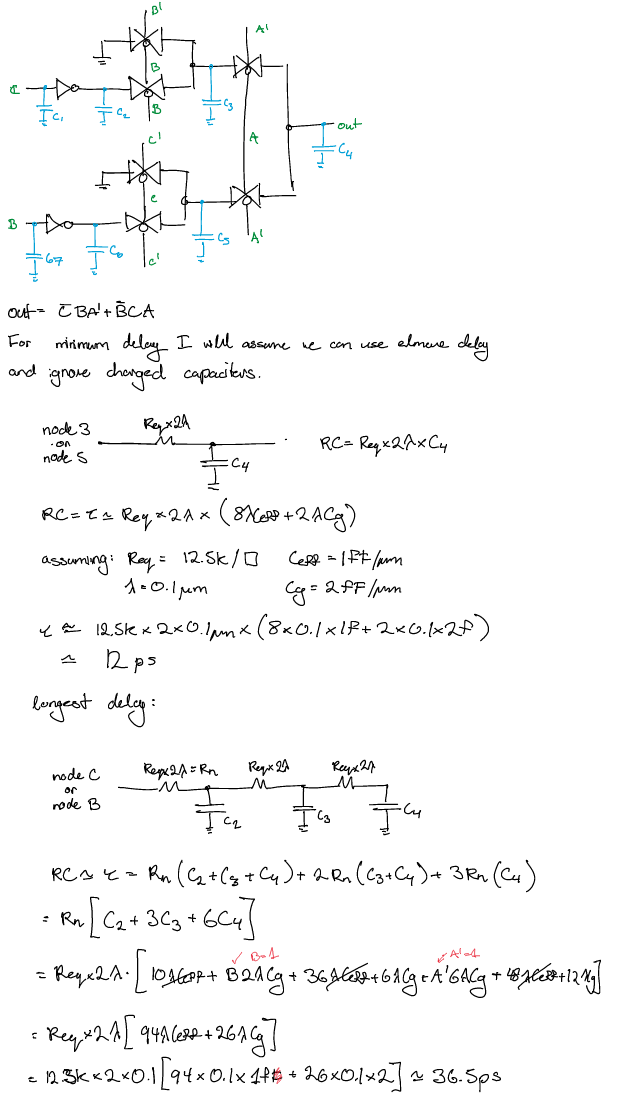 B'
A'
B
C
C₁
C₂
B
C₃
C'
A
out
C₄
C
B
C₇
C₆
C'
C₅
A'
out = C̄BA' + B̄CA
For minimum delay I will assume we can use elmore delay
and ignore charged capacitors.
node 3
or
node 5
Req×2λ
C₄
RC = Req×2λ×C₄
RC = τ ≃ Req × 2λ × (8λCeff + 2λCg)
assuming: Req = 12.5k/□ Ceff = 1fF/μm
λ = 0.1μm Cg = 2fF/μm
τ ≃ 12.5k × 2×0.1μm × (8×0.1×1f + 2×0.1×2f)
≃ 12ps
longest delay:
node C
or
node B
Req×2λ = Rn Req×2λ Req×2λ
C₂ C₃ C₄
RC ≃ τ = Rn(C₂+C₃+C₄) + 2Rn(C₃+C₄) + 3Rn(C₄)
= Rn[C₂ + 3C₃ + 6C₄]
✓ B=1 ✓ A'=1
= Req×2λ·[10λCeff + B2λCg + 36λCeff + 6λCg + A'6λCg + 48λCeff + 12λg]
= Req×2λ[94λCeff + 26λCg]
= 12.5k × 2×0.1[94×0.1×1f + 26×0.1×2] ≃ 36.5ps